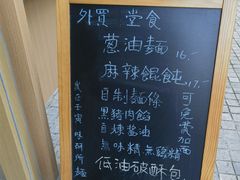 外買 堂食
蔥油麵 16.-
麻辣餛飩 17.-
自制麵條
黑豬肉餡
自煉醬油
無味精 無雞精
可免費加面
低油破酥包